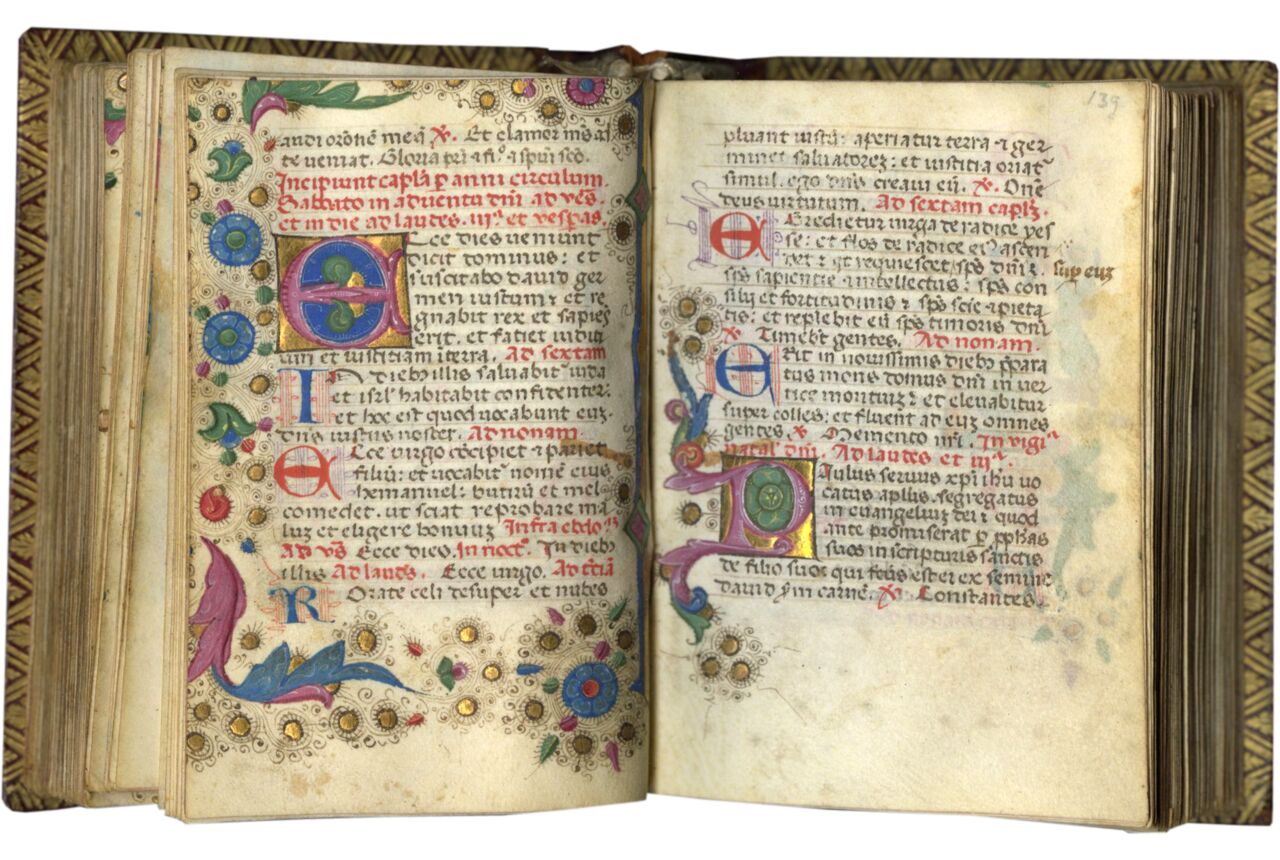 andi orōnē meā ℟. Et clamor m̄s ad
te veniat. Gloria pr̄i ⁊ fi° ⁊ spūi scō.
Incipiunt capl̄a ꝑ anni circulum.
Sabbato in adventu dn̄i ad vēs.
et in die ad laudes. iii° et vesp̄as.
Ecce dies veniunt
dicit dominus: et
suscitabo david ger
men iustum: et re
gnabit rex et sapiēs
erit. et faciet iuditi
um et iusticiam ī terra. Ad sextam
In diebꝫ illis salvabit̄ iuda
et isrl̄ habitabit confidenter:
et hoc est quod vocabunt euꝫ.
dn̄s iustus noster. Ad nonam.
Ecce virgo cōcipiet ⁊ pariet
filiū: et vocabit̄ nomē eius
hemanuel: butirū et mel
comedet. ut sciat reprobare ma
luꝫ et eligere bonuuꝫ Infra ebdo
Ad vs̄ Ecce dies. In noct°. In diebꝫ
illis Ad laudes. Ecce virgo. Ad t̄ciā
Rorate celi desuper et nubes
139
pluant iustū: aperiatur terra ⁊ ger
minet salvatoreꝫ: et iustitia oriat̄
simul. ego dn̄s creavi eū. ℟. Dn̄e
deus virtutum. Ad sextam capl̄ꝫ.
Egredietur virga de radice yes
se: et flos de radice ei° ascen
det ⁊ req̇uiescet sp̄s dn̄i ⁊. sup euꝫ
sp̄s sapientie ⁊ intellectus: sp̄s con
silij et fortitudinis ⁊ sp̄s scīe ⁊ pieta
tis: et replebit eū sp̄s timoris dn̄i
℟. Timebt̄ gentes. Ad nonam.
Erit in novissimis diebꝫ p̄para
tus mons domus dn̄i in ver
tice montiuꝫ ⁊ elevabitur
super colles: et fluent ad euꝫ omnes
gentes ℟. Memento n̄ri. In vigi
natal̄ dn̄i. Ad laudes et iii°.
Paulus servus xp̄i ihū vo
catus apl̄us. segregatus
in evangeliuꝫ dei ⁊ quod
ante promiserat ꝑ ꝓphās
suos in scripturis sanctis
de filio suo: qui fc̄us est ei ex semine
david s̄m carnē. ℟. Constantes.